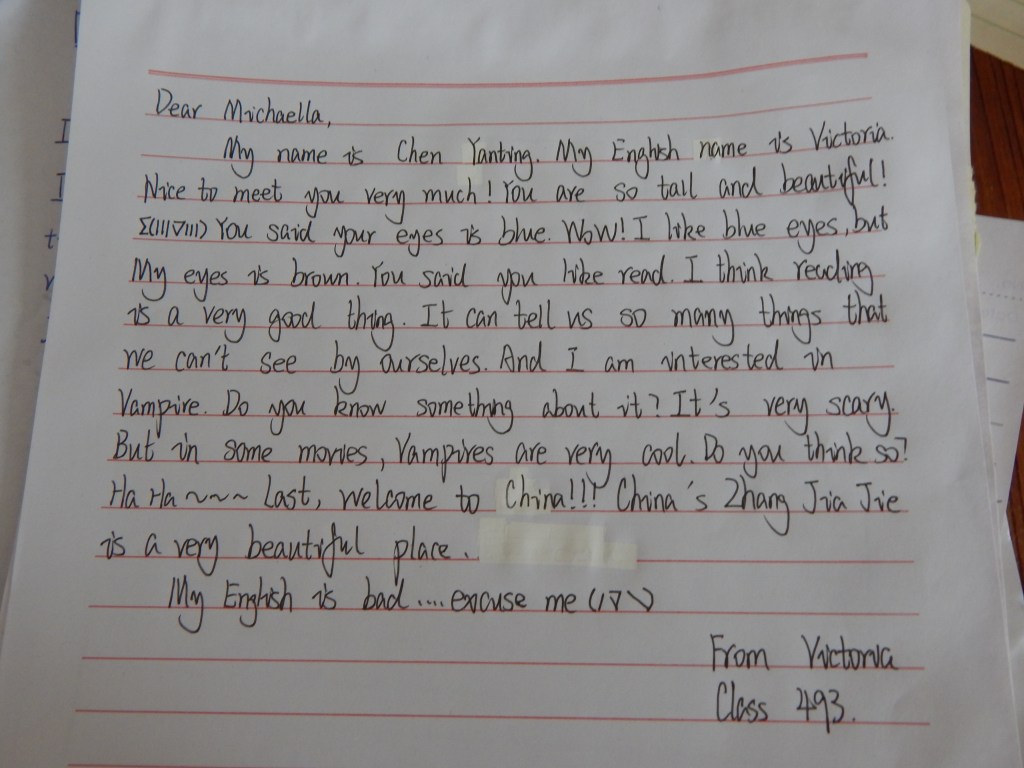 Dear Michaella,
My name is Chen Yanting. My English name is Victoria.
Nice to meet you very much! You are so tall and beautiful!
Σ(|||▽|||) You said your eyes is blue. WoW! I like blue eyes, but
My eyes is brown. You said you like read. I think reading
is a very good thing. It can tell us so many things that
we can't see by ourselves. And I am interested in
Vampire. Do you know something about it? It's very scary.
But in some movies, Vampires are very cool. Do you think so?
Ha Ha ~~~ Last, welcome to China!!! China's Zhang Jia Jie
is a very beautiful place.
My English is bad....excuse me (/▽\)
From Victoria
Class 493.